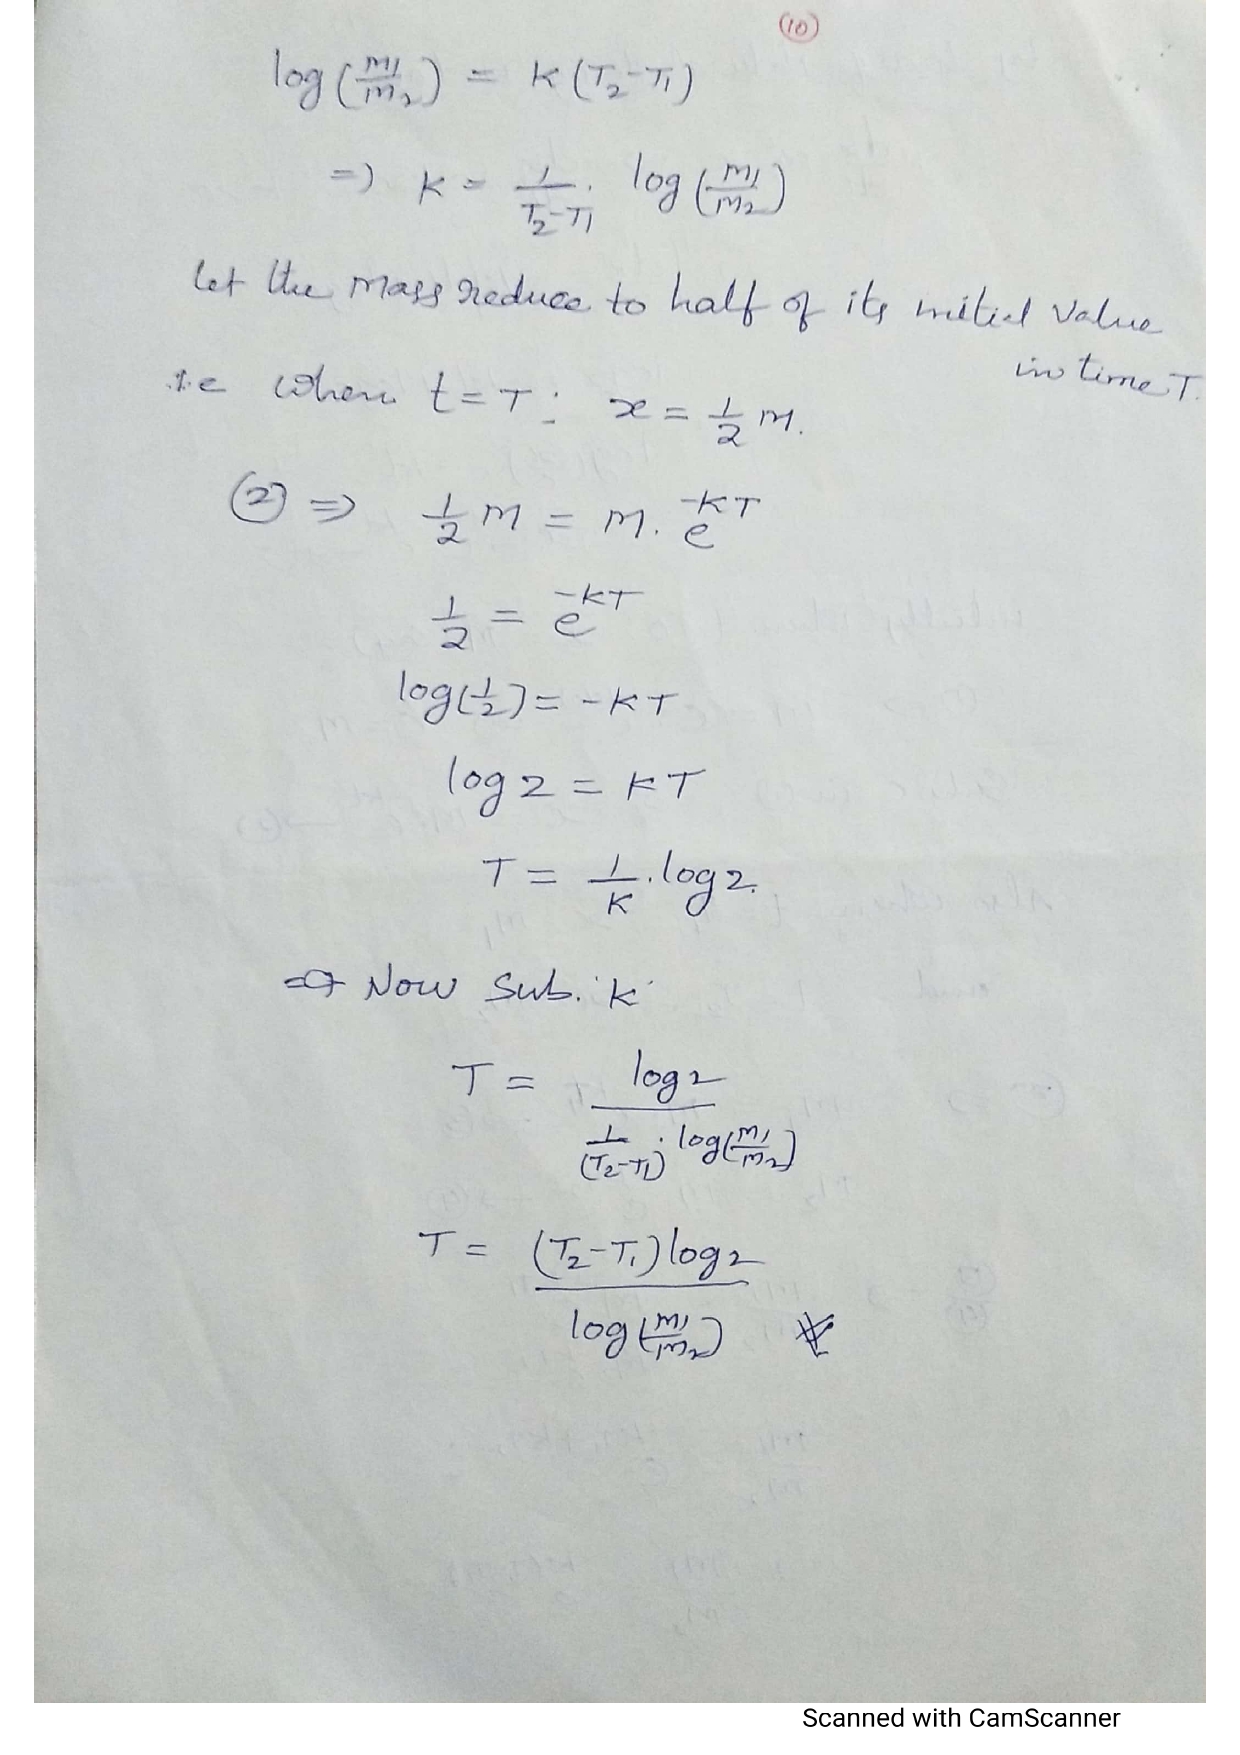 (10)
log(m1/m2) = K(T2-T1)
=) K = 1/(T2-T1) . log(m1/m2)
Let the mass reduce to half of its initial value
in time T.
i.e when t = T : x = 1/2 M.
(2) => 1/2 M = M. e^-KT
1/2 = e^-KT
log(1/2) = -KT
log2 = KT
T = 1/K . log2.
=> Now Sub. 'K'
T = log2 / (1/(T2-T1) . log(m1/m2))
T = (T2-T1)log2 / log(m1/m2)
Scanned with CamScanner